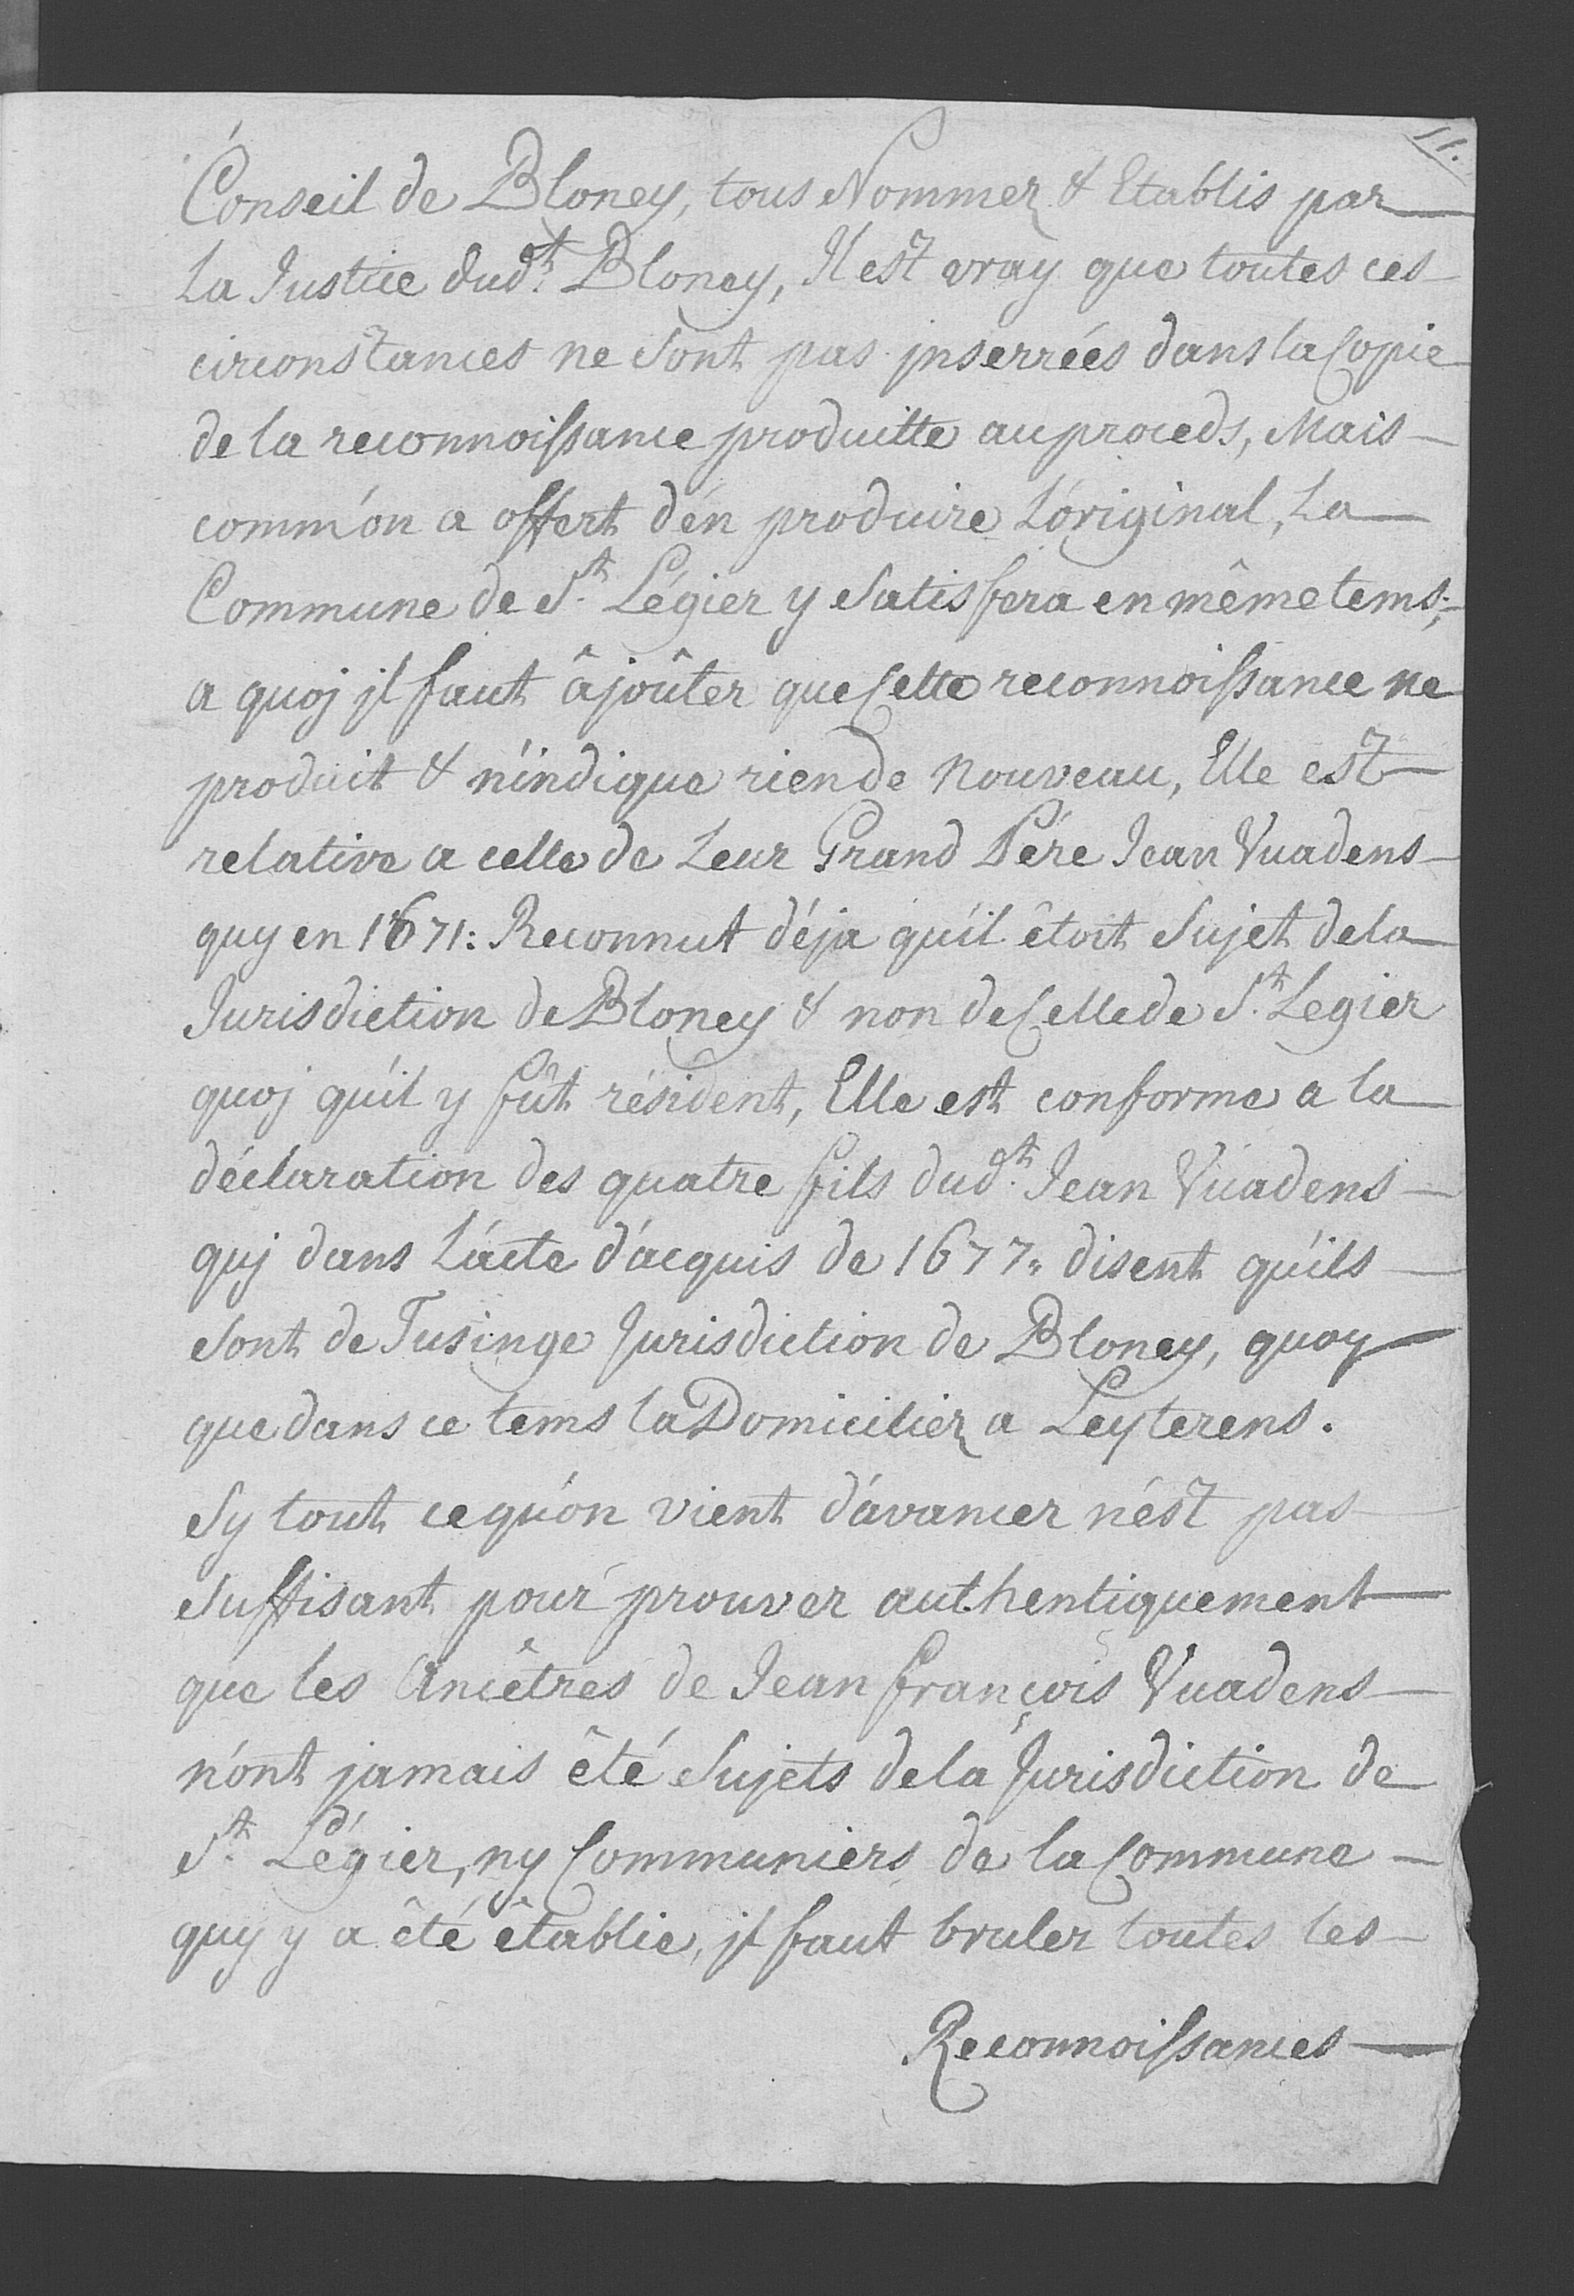 11.
Conseil de Bloney, tous Nommez & Etablis par
La Justice dud.t Bloney, Il est vray que toutes ces
circonstances ne sont pas jnserrées dans la Copie
de la reconnoissance produitte au proceds, Mais
comm'on a offert d'en produire L'original, La
Commune de S.t Légier y Satisfera en même tems;
a quoj jl faut âjoûter que Cette reconnoissance ne
produit & n'indique rien de nouveau, Elle est
relative a celle de Leur Grand Pére Jean Vuadens
quy en 1671: Reconnut déja qu'il êtoit Sujet de la
Jurisdiction de Bloney & non de Celle de S.t Legier
quoj qu'il y fût résident, Elle est conforme a la
déclaration des quatre fils dud.t Jean Vuadens
quj dans L'acte d'acquis de 1677: disent qu'ils
sont de Tusinge Jurisdiction de Bloney, quoy
que dans ce tems la Domiciliez a Leyterens.
Sy tout ce qu'on vient d'avancer n'est pas
suffisant pour prouver authentiquement
que les Ancêtres de Jean François Vuadens
n'ont jamais êté Sujets de la Jurisdiction de
S.t Légier, ny Communiers de la Commune
quy y a êté êtablie, jl faut bruler toutes les
Reconnoissances